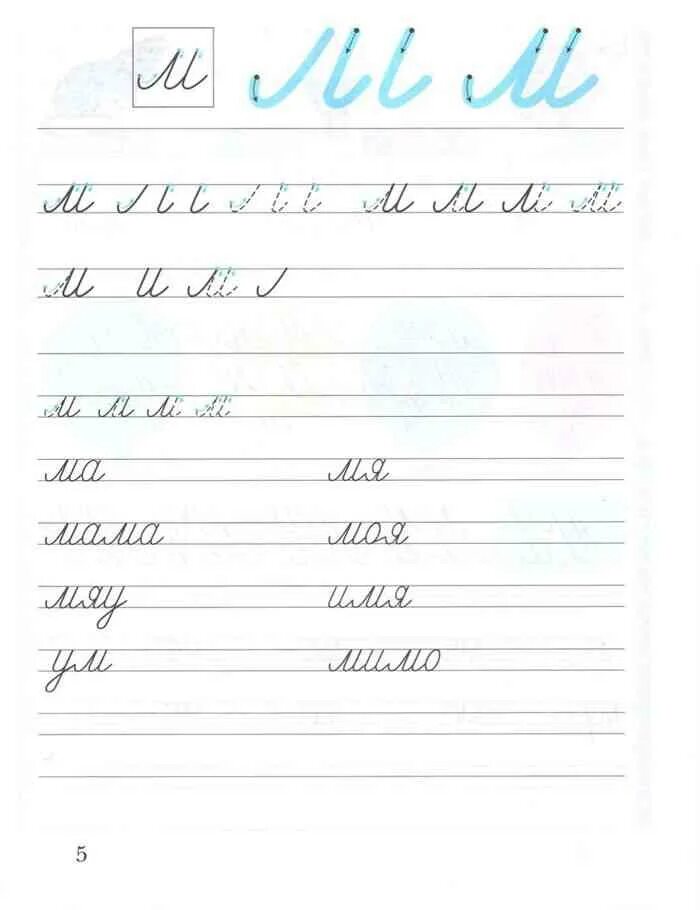 м
м м м м м м
м и м
м м м м
ма мя
мама моя
мяу имя
ум мимо
5